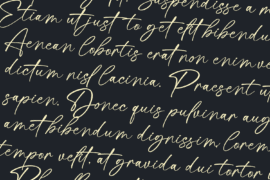 Suspendisse a m
Etiam ut just to get elit bibendu
Aenean lobortis erat non enim ve
dictum nisl lacinia. Praesent u
sapien. Donec quis pulvinar aug
amet bibendum dignissim lorem
tempor velit, at gravida dui tortor